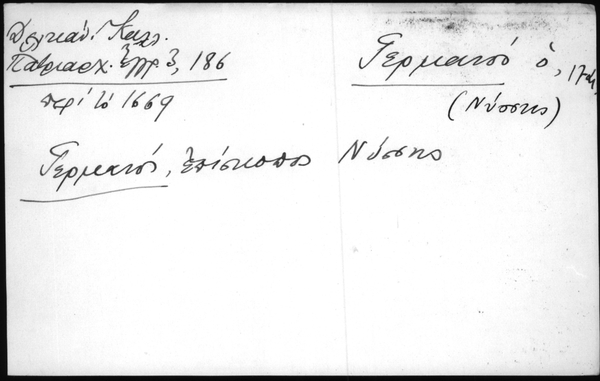 Δελικάν. Καλλ.
Πατριαρχ. Ἔγγρ 3, 186
περί τό 1669
Γερμανό ὁ, 17
(Νύσσης)
Γερμανός, ἐπίσκοπος Νύσσης